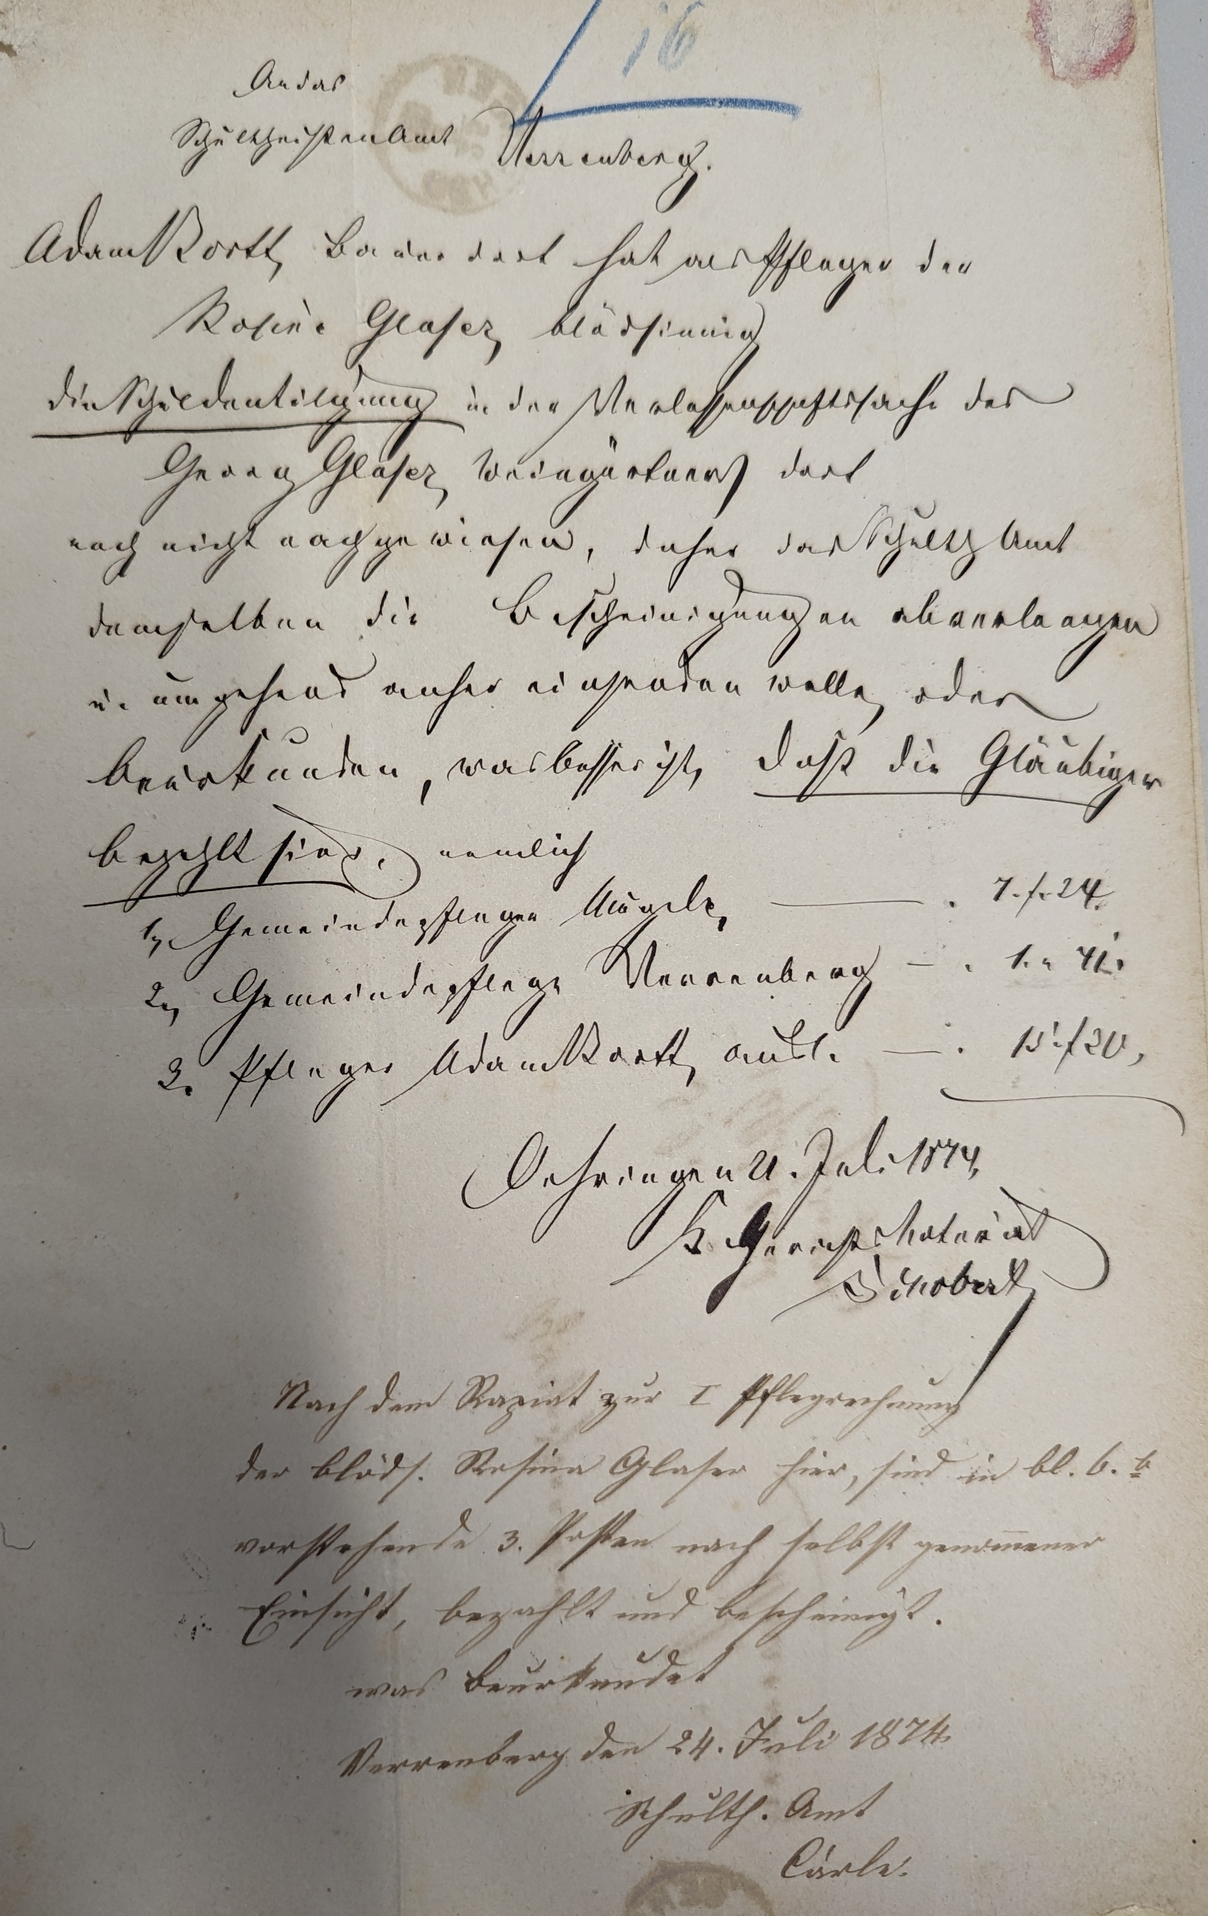 16
An das
Schultheißenamt Verrenberg.
Adam Kortt, Bauer dort hat als Pfleger der
Rosine Glaser, blödsinnig
die Schuldentilgung in der Verlassenschaftssache des
Georg Glaser, Weingärtners dort
noch nicht nachgewiesen, daher das Schulth Amt
demselben die Bescheinigungen abverlangen
u. umgehend anher einsenden wolle, oder
beurkunden, was besser ist, daß die Gläubiger
bezahlt sind, nemlich
1, Gemeindepfleger — . 7. f. 24.
2, Gemeindepflege Verrenberg — . 1. " 41.
3. Pfleger Adam Kortt, — . 15 f 20,
Oehringen 21. Juli 1874,
K. Gerichts Notariat
Schobert
Nach dem Rapiat zur I Pflegrechnung
der blöds. Rosina Glaser hier, sind in bl. 6. b
vorstehende 3. Posten nach selbst genommener
Einsicht, bezahlt und bescheinigt.
was beurkundet
Verrenberg den 24. Juli 1874.
Schulth. Amt
Cärle.